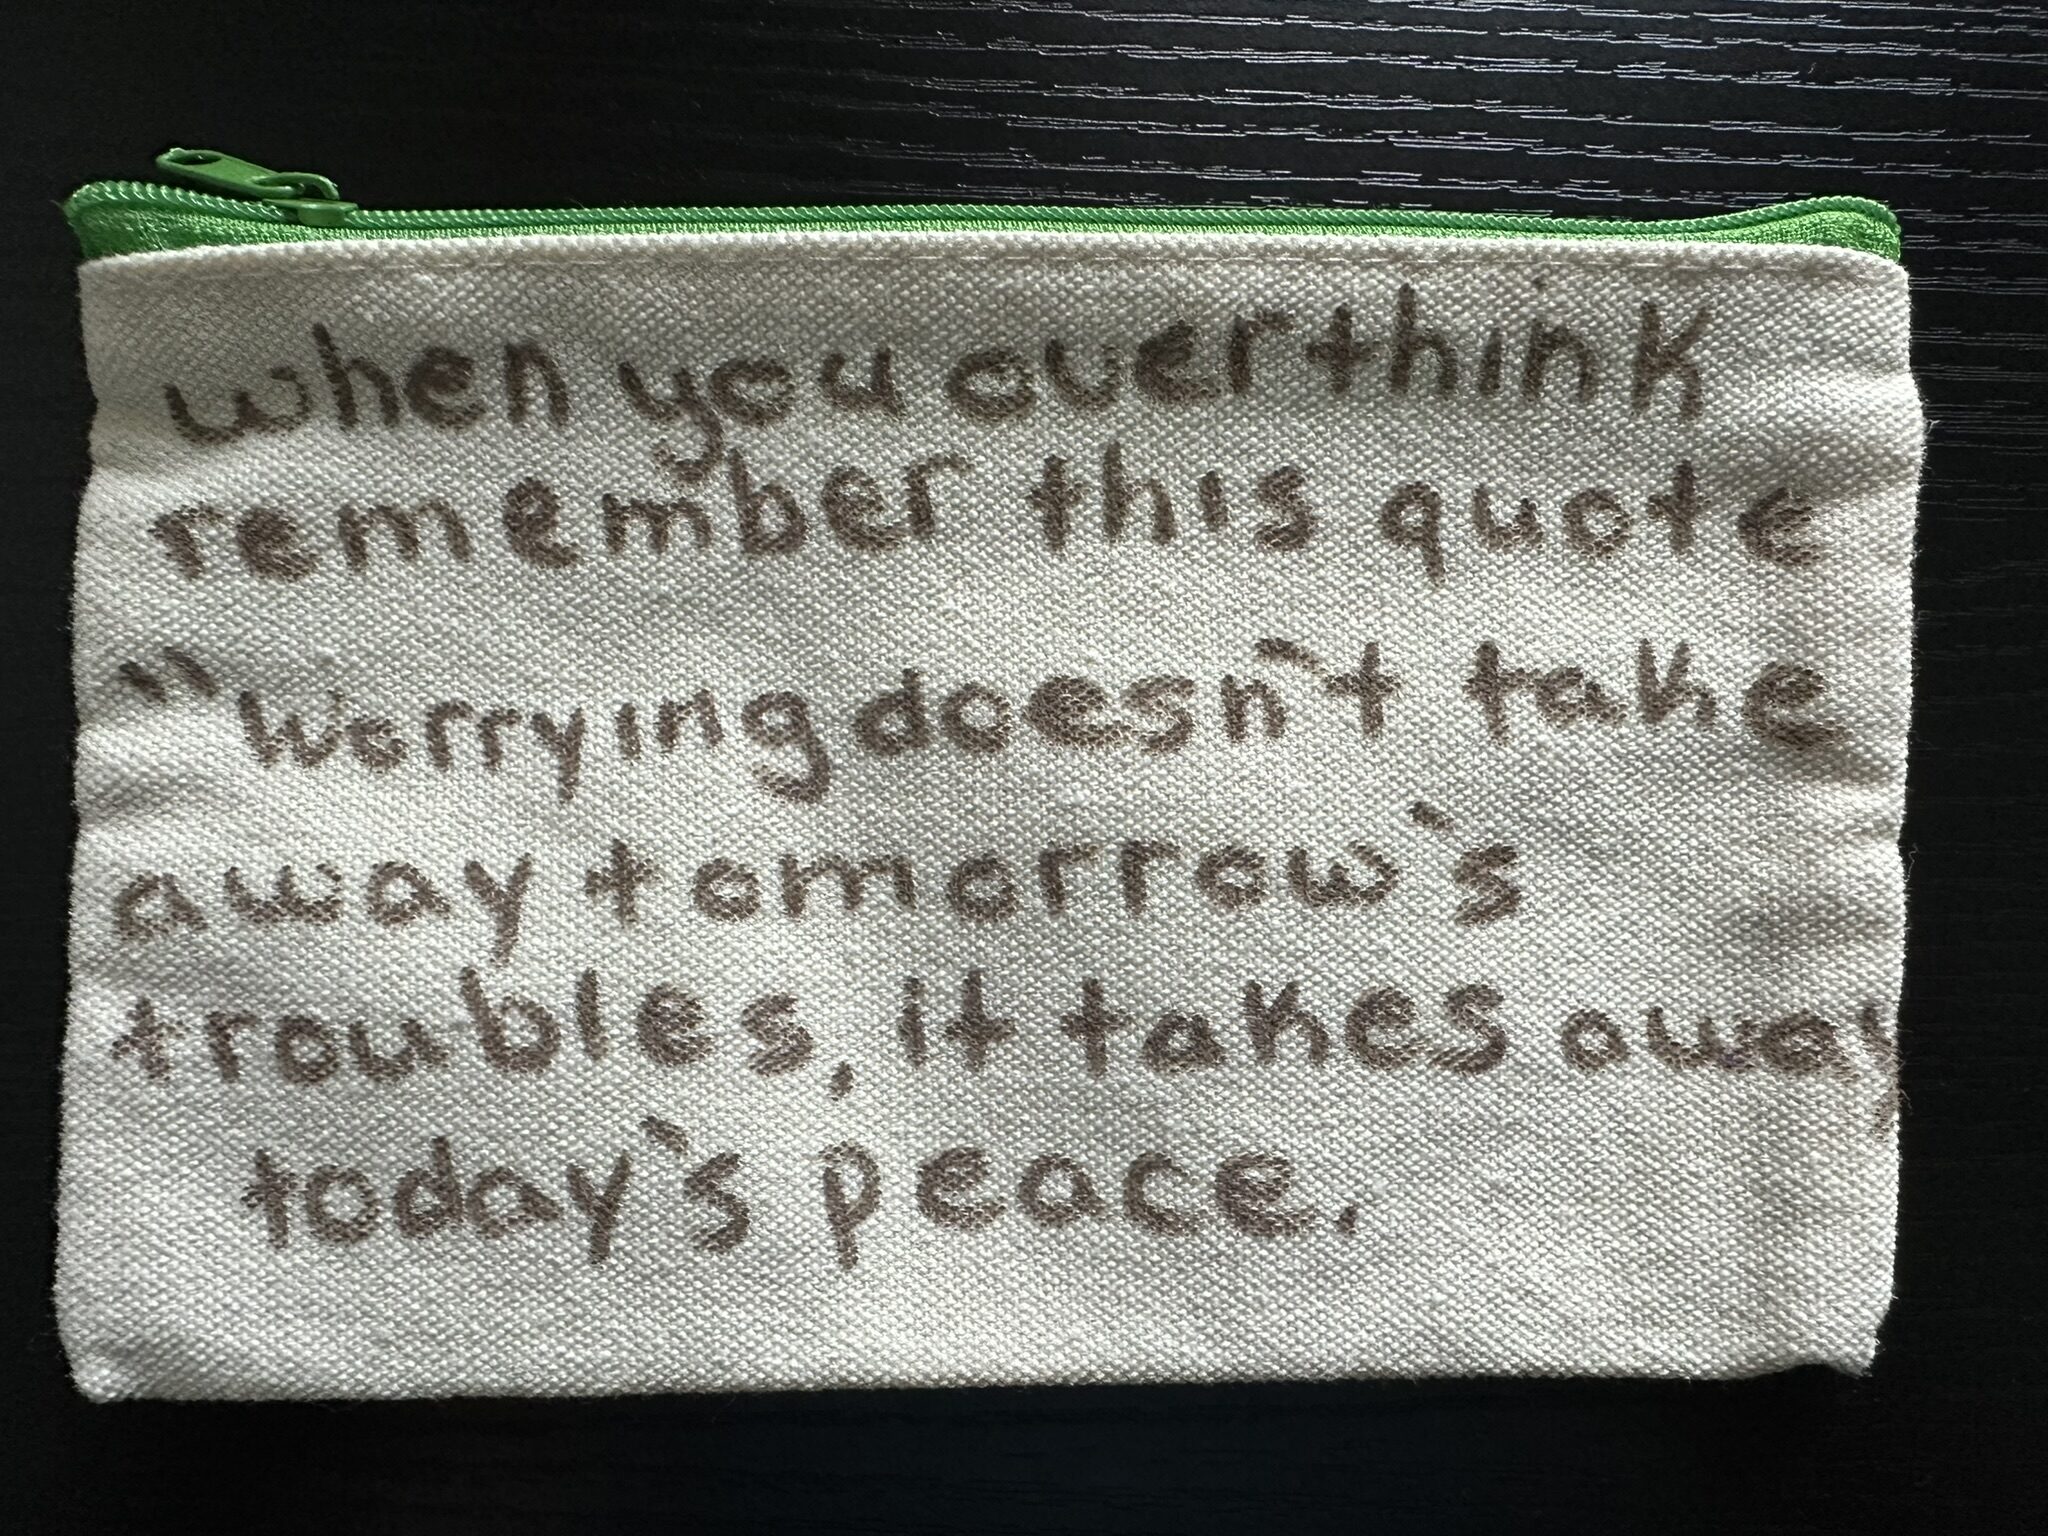 when you overthink
remember this quote
"Worrying doesn't take
away tomorrow's
troubles, it takes away
today's peace.